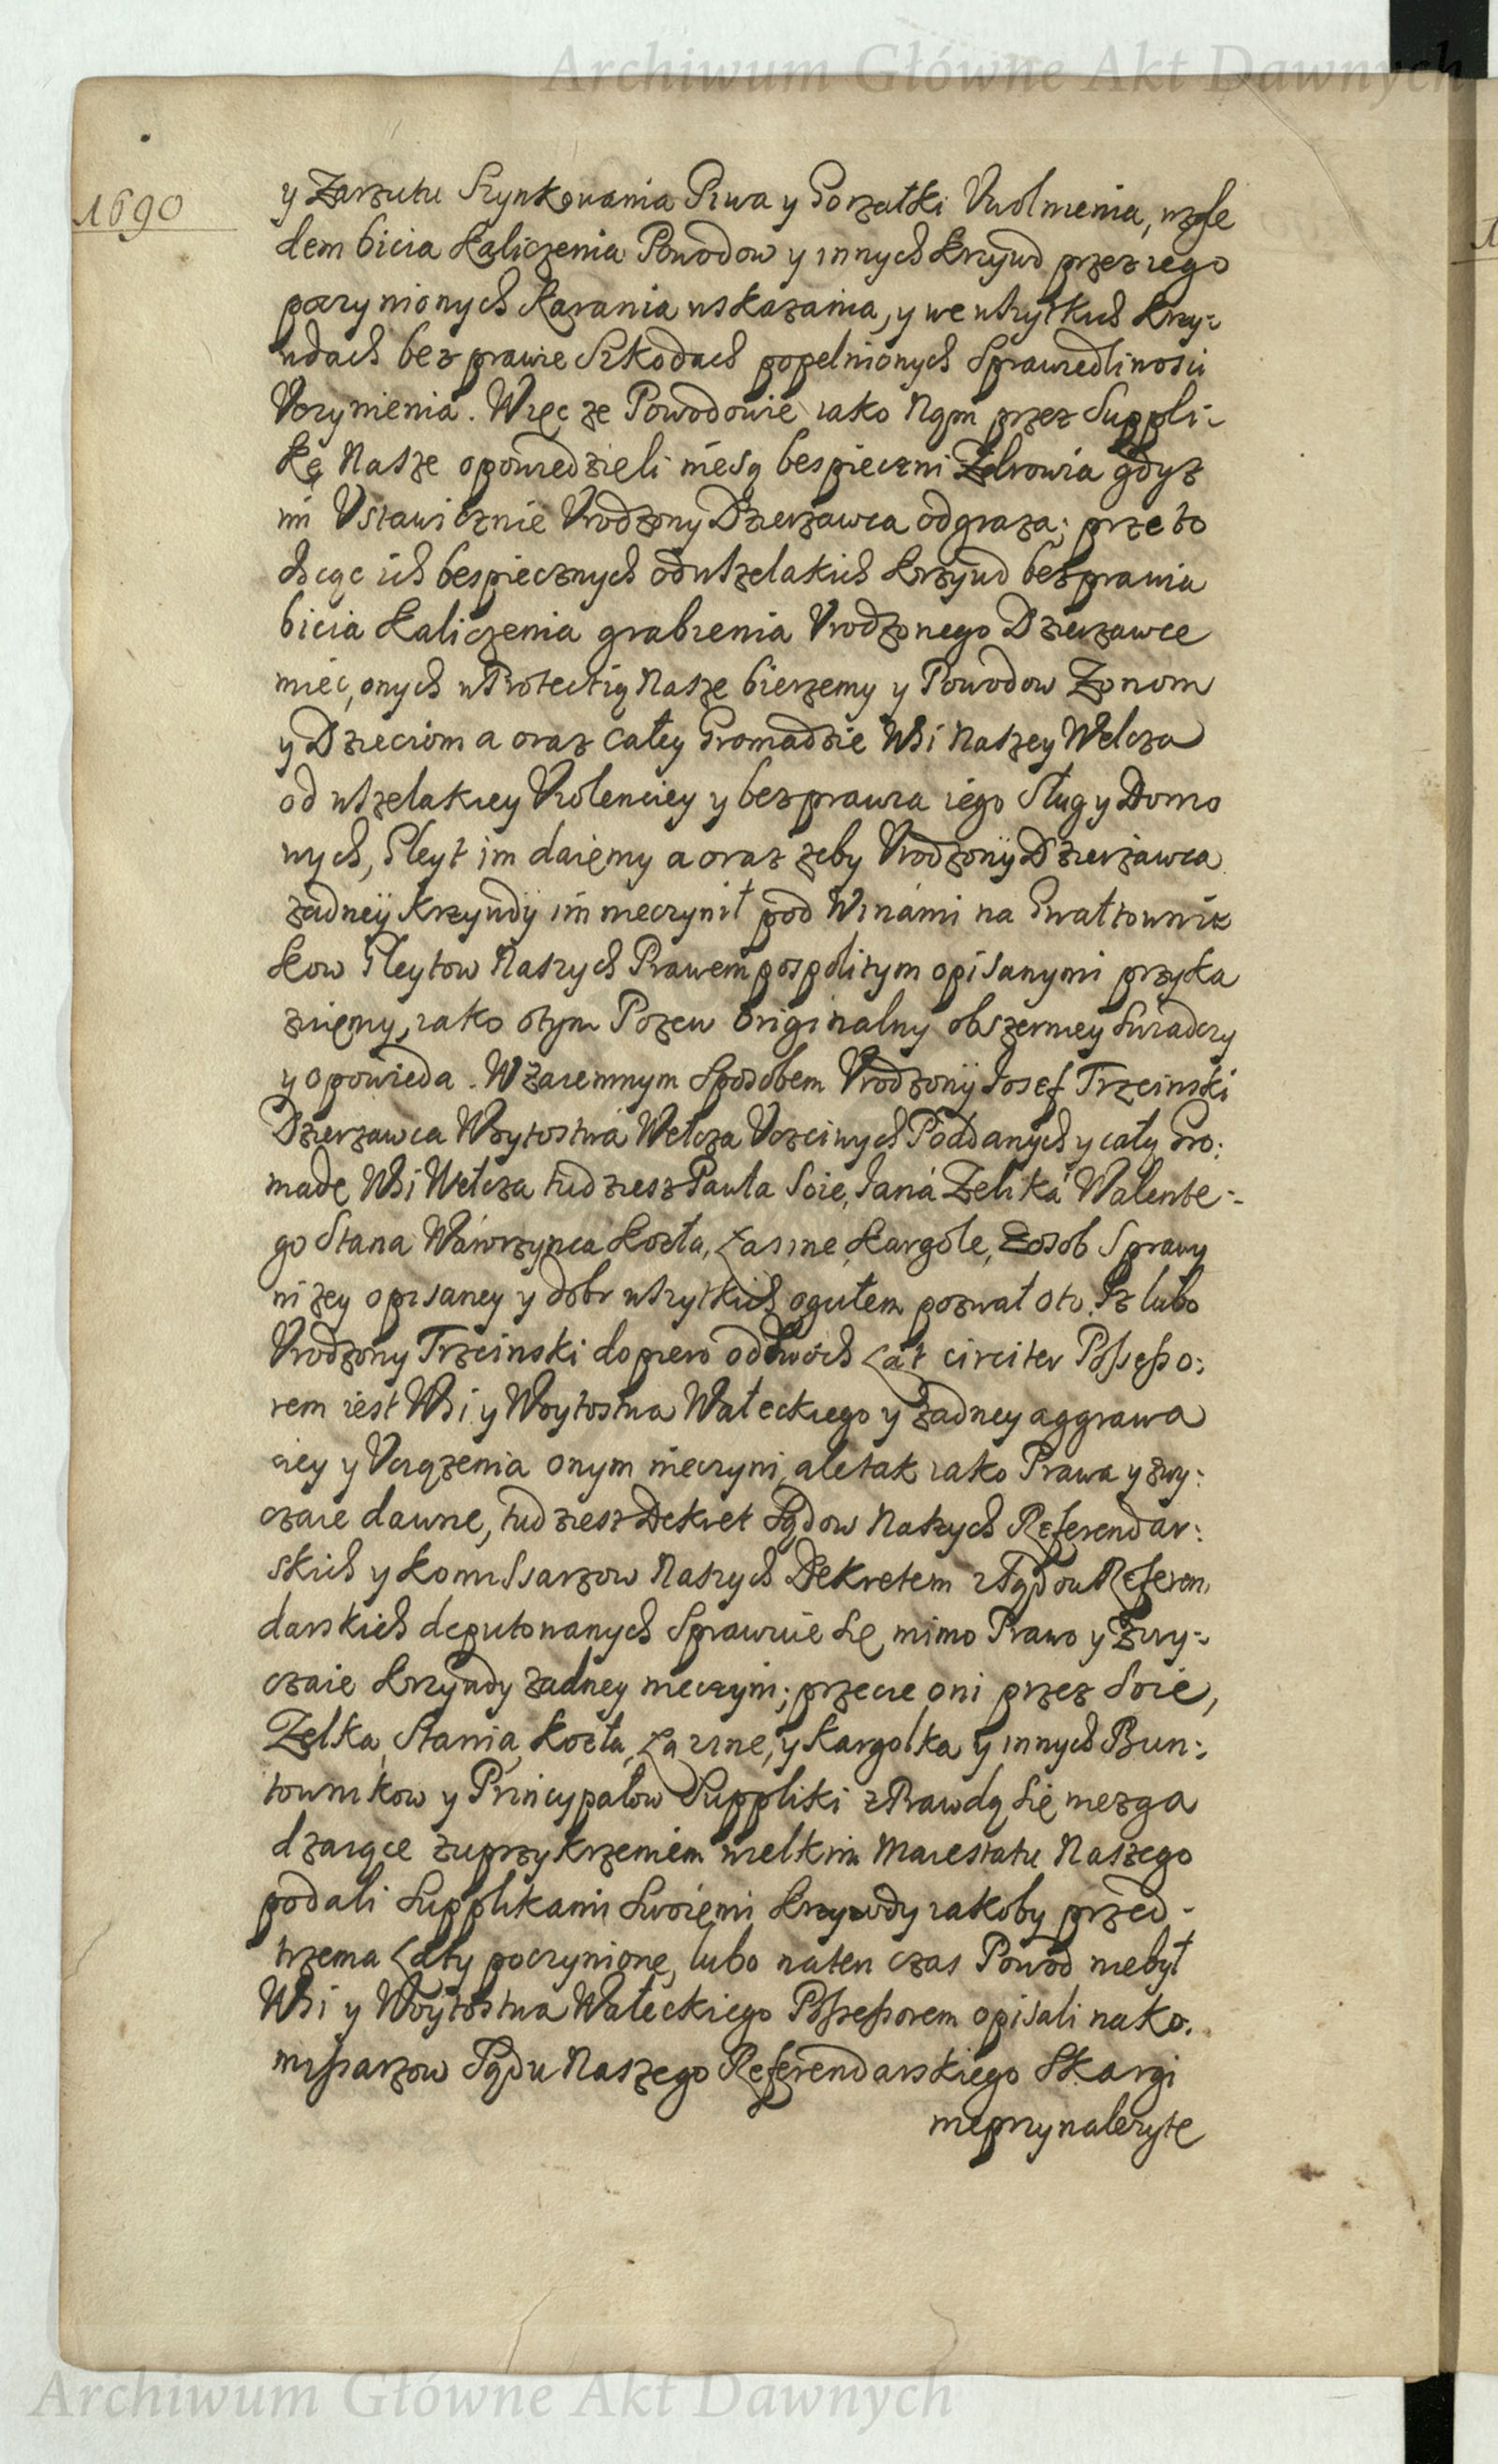 Archiwum Główne Akt Dawnych
1690
y Zarzutu Szynkowania Piwa y Gorzałki Vwolnienia, wzglę
dem bicia kaliczenia Powodow y innych krzywd przez iego
poczynionych karania wskazania, y we wszytkich krzy:
wdach bezprawie Szkodach popełnionych Sprawiedliwosci
Vczynienia. Więc ze Powodowie iako Nąm przez Suppli:
kę Nasze opowiedzieli niesą bespieczni Zdrowia gdyz
im Vstawicznie Vrodzony Dzierzawca odgraza; przeto
chcąc ich bespiecznych odwszelakich krzywd bezprawia
bicia kaliczenia grabienia Vrodzonego Dzierzawce
miec, onych wProtectią Nasze bierzemy y Powodow Zonom
y Dzieciom a oraz całey Gromadzie Wsi Naszey Welcza
od wszelakiey Violenciey y bezprawia iego Sług y Domo
wych, Gleyt im daięmy a oraz zeby Vrodzony Dzierzawca
zadney krzywdy im nieczynił pod Winami na Gwałtownik
kow Gleytow Naszych Prawem pospolitym opisanymi przyka
zuięmy, iako otym Pozew originalny obszerniey Swiadczy
y opowieda. Wzaiemnym Sposobem Vrodzony Iosef Trzcinski
Dzierzawca Woytostwa Wełcza Vczciwych Poddanych y całą Gro:
madę Wsi Wełcza tudziesz Pawła Soie, Iana Zelika Walente:
go Stana Wawrzynca Kozła, Łasine, Kargole, Zosob Sprawy
nizey opisaney y dobr wszytkich ogułem pozwał oto. Iz lubo
Vrodzony Trzcinski dopiero oddwoch Lat circiter Possesso:
rem iest Wsi y Woytostwa Wałeckiego y zadney aggrawa
ciey y Vciązenia onym nieczyni, ale tak iako Prawa y zwy:
czaie dawne, tudziesz Dekret Sądow Naszych Referendar:
skich y Komissarzow Naszych Dekretem zSądow Referen,
darskich deputowanych Sprawuie Się, mimo Prawo y Zwy:
czaie krzywdy zadney nieczyni; przecie oni przez Soie,
Zelka, Stania, Kozła, Łazine, y Kargolka y innych Bun:
townikow y Principałow Suppliki zPrawdą Się niezga
dzaiące zuprzykrzeniem wielkim Maiestatu Naszego
podali Supplikami Swoiemi krzywdy iakoby przed-
trzema Laty poczynione, lubo naten czas Powod niebył
Wsi y Woytostwa Wałeckiego Possessorem opisali nako.
missarzow Sądu Naszego Referendarskiego Skargi
nieprzynalezyte
Archiwum Główne Akt Dawnych